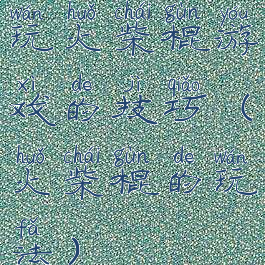 wán huǒ chái gùn yóu
玩火柴棍游
xì de jì qiǎo
戏的技巧(
huǒ chái gùn de wán
火柴棍的玩
fǎ
法)